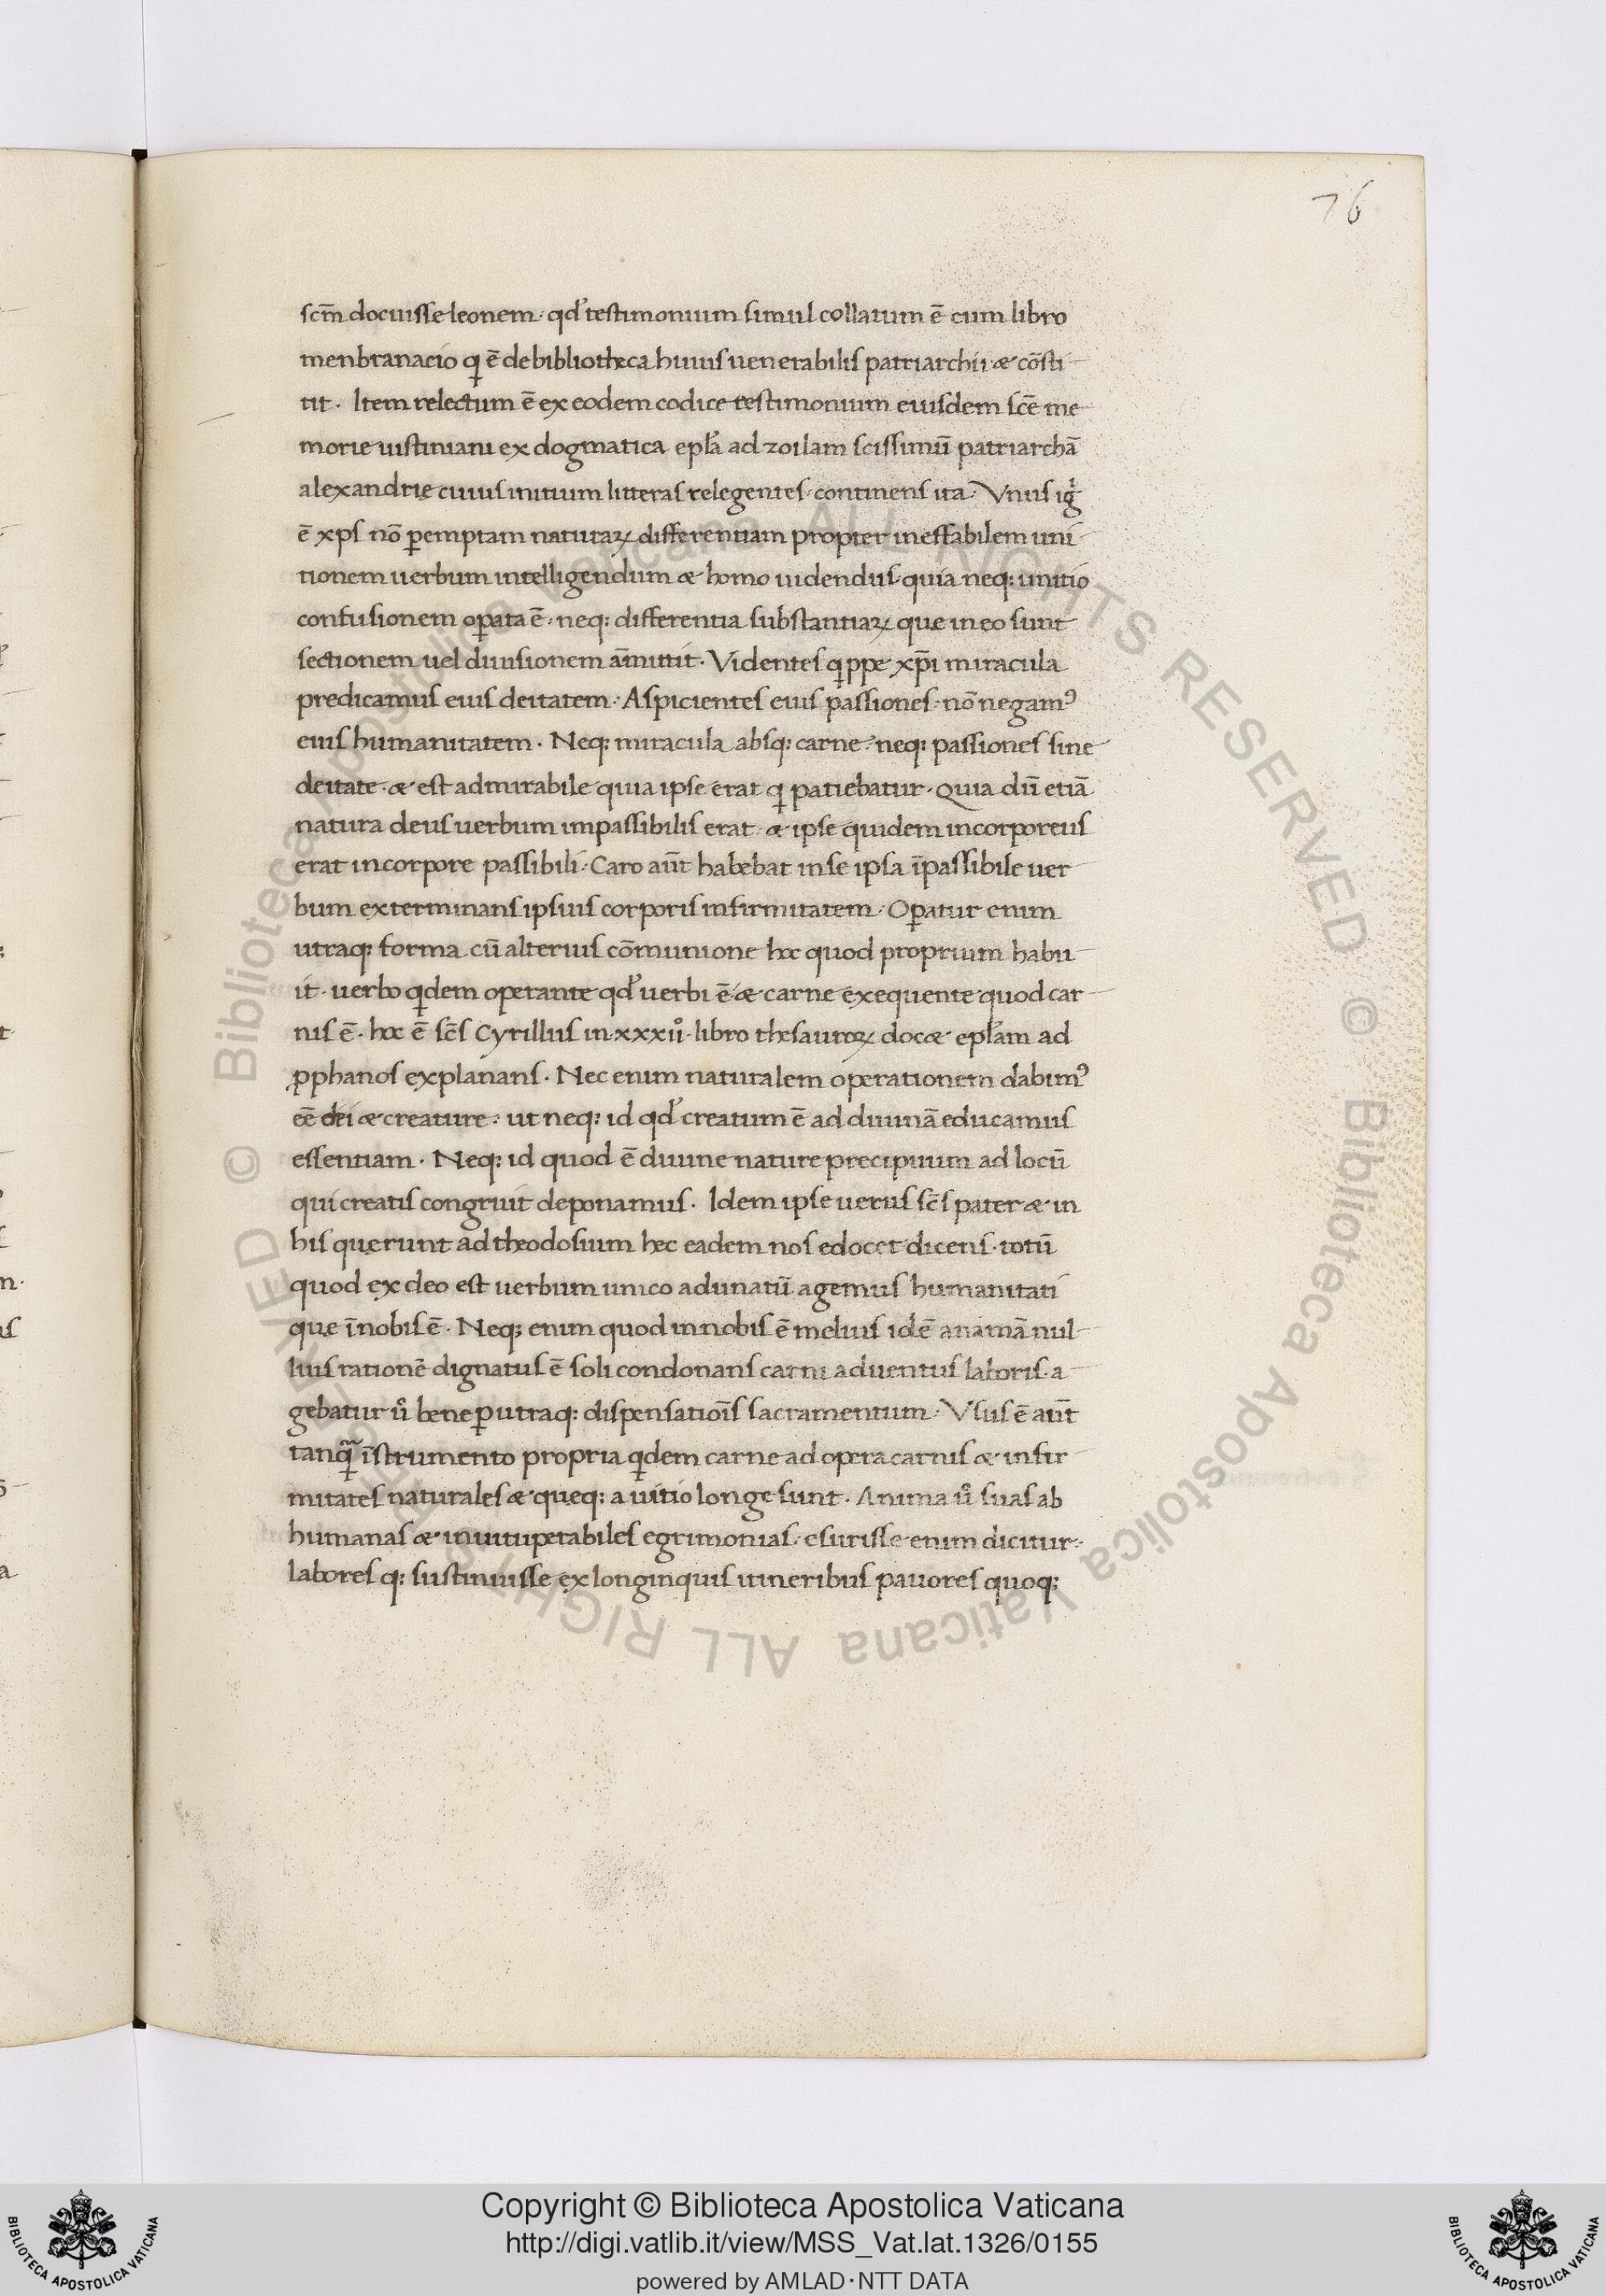 76
scm̄ docuisse leonem· qđ testimonium simul collatum ē cum libro
menbranacio q̇ ē de bibliotheca huius uenerabilis patriarchii· & cōsti
tit· Item relectum ē ex eodem codice testimonium eiusdem scē me
morie iustiniani ex dogmatica epła ad zoilam scissimū patriarchā
alexandrię cuius initium litteras relegentes· continens ita· Vnus igr̄
ē xps nō ꝑemptam naturaꝝ differentiam propter ineffabilem uni
tionem uerbum intelligendum & homo uidendus· quia neq: unitio
confusionem oꝑata ē· neq: differentia substantiaꝝ que in eo sunt
sectionem uel diuisionem āmittit· Videntes q̇ppe xp̄i miracula
predicamus eius deitatem· Aspicientes eius passiones· nō negam᾽
eius humanitatem· Neq: miracula absq: carne· neq: passiones sine
deitate· & est admirabile quia ipse erat q̇ patiebatur· quia dū etiā
natura deus uerbum impassibilis erat· & ipse quidem incorporeus
erat in corpore passibili· Caro aūt habebat in se ipsa īpassibile uer
bum exterminans ipsius corporis infirmitatem· Oꝑatur enim
utraq: forma cū alterius cōmunione hoc quod proprium habu
it· uerbo q̇dem operante qđ uerbi ē & carne exequente quod car
nis ē· hoc ē scs̄ Cyrillus in·xxxiiͦ· libro thesauroꝝ doc& epłam ad
pphanos explanans· Nec enim naturalem operationem dabim᾽
eē dei & creature· ut neq: id qđ creatum ē ad diuinā educamus
essentiam· Neq: id quod ē diuine nature precipuum ad locū
qui creatis congruit deponamus· Idem ipse uerus scs̄ pater & in
his querunt ad theodosium hec eadem nos edocet dicens· totū
quod ex deo est uerbum unico adunatū agemus humanitati
que ī nobis ē· Neq: enim quod in nobis ē melius id ē anamā nul
lius rationē dignatus ē soli condonans carni aduentus laboris· a
gebatur uͦ bene ꝑ utraq: dispensatiois̄ sacramentum· Vsus ē aūt
tanq̄ īstrumento propria q̇dem carne ad opera carnis & infir
mitates naturales & queq: a uitio longe sunt· Anima uͦ suas ab
humanas & inuituperabiles egrimonias· esurisse enim dicitur·
labores q: sustinuisse ex longinquis itineribus pauores quoq:
Copyright © Biblioteca Apostolica Vaticana
http://digi.vatlib.it/view/MSS_Vat.lat.1326/0155
powered by AMLAD·NTT DATA